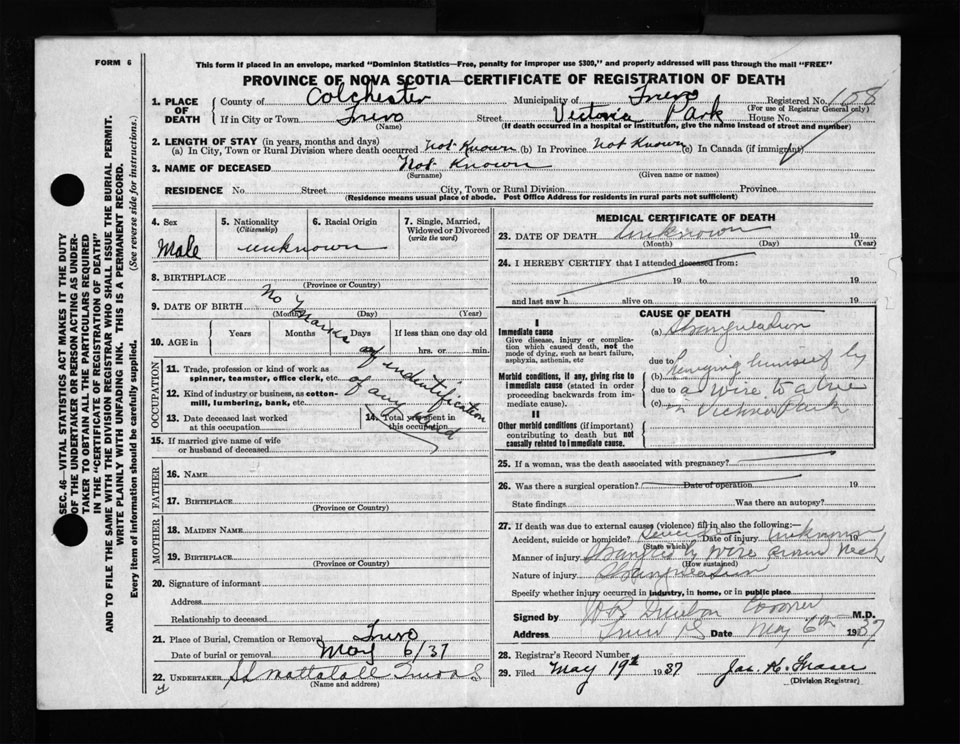 FORM 6
This form if placed in an envelope, marked "Dominion Statistics—Free, penalty for improper use $300," and properly addressed will pass through the mail "FREE"
PROVINCE OF NOVA SCOTIA—CERTIFICATE OF REGISTRATION OF DEATH
SEC. 46—VITAL STATISTICS ACT MAKES IT THE DUTY
OF THE UNDERTAKER OR PERSON ACTING AS UNDER-
TAKER TO OBTAIN ALL THE PARTICULARS REQUIRED
IN THE "CERTIFICATE OF REGISTRATION OF DEATH"
AND TO FILE THE SAME WITH THE DIVISION REGISTRAR WHO SHALL ISSUE THE BURIAL PERMIT.
WRITE PLAINLY WITH UNFADING INK. THIS IS A PERMANENT RECORD.
Every item of information should be carefully supplied. (See reverse side for instructions.)
1. PLACE OF DEATH County of Colchester Municipality of Truro Registered No. 108
(For use of Registrar General only)
If in City or Town Truro Street Victoria Park House No.
(Name) (If death occurred in a hospital or institution, give the name instead of street and number)
2. LENGTH OF STAY (in years, months and days)
(a) In City, Town or Rural Division where death occurred Not Known (b) In Province Not Known (c) In Canada (if immigrant)
3. NAME OF DECEASED Not Known
(Surname) (Given name or names)
RESIDENCE No. Street City, Town or Rural Division Province
(Residence means usual place of abode. Post Office Address for residents in rural parts not sufficient)
4. Sex 5. Nationality 6. Racial Origin 7. Single, Married,
(Citizenship) Widowed or Divorced
(write the word)
Male unknown
8. BIRTHPLACE
(Province or Country)
9. DATE OF BIRTH
(Month) (Day) (Year)
No marks of indentification of any kind
10. AGE in Years Months Days If less than one day old
hrs. or min.
OCCUPATION
11. Trade, profession or kind of work as
spinner, teamster, office clerk, etc.
12. Kind of industry or business, as cotton-
mill, lumbering, bank, etc.
13. Date deceased last worked
at this occupation
14. Total years spent in
this occupation
15. If married give name of wife
or husband of deceased
FATHER
16. NAME
17. BIRTHPLACE
(Province or Country)
MOTHER
18. MAIDEN NAME
19. BIRTHPLACE
(Province or Country)
20. Signature of informant
Address
Relationship to deceased
21. Place of Burial, Cremation or Removal Truro
Date of burial or removal May 6/37
22. UNDERTAKER Mattatall Truro
(Name and address)
MEDICAL CERTIFICATE OF DEATH
23. DATE OF DEATH Unknown 19
(Month) (Day) (Year)
24. I HEREBY CERTIFY that I attended deceased from:
19 to 19
and last saw h alive on 19
CAUSE OF DEATH
I
Immediate cause (a) Strangulation
Give disease, injury or complica-
tion which caused death, not the
mode of dying, such as heart failure,
asphyxia, asthenia, etc
due to
Morbid conditions, if any, giving rise to
immediate cause (stated in order
proceeding backwards from im-
mediate cause).
(b) hanging himself by
due to a wire to a tree
(c) in Victoria Park
II
Other morbid conditions (if important)
contributing to death but not
causally related to immediate cause.
25. If a woman, was the death associated with pregnancy?
26. Was there a surgical operation? Date of operation 19
State findings Was there an autopsy?
27. If death was due to external causes (violence) fill in also the following:—
Accident, suicide or homicide? Suicide Date of injury Unknown
(State which)
Manner of injury by wire around neck
(How sustained)
Nature of injury Strangulation
Specify whether injury occurred in industry, in home, or in public place
Signed by Coroner M.D.
Address Truro NS Date May 6th 1937
28. Registrar's Record Number
29. Filed May 19th 1937 Jas. K. Fraser
(Division Registrar)